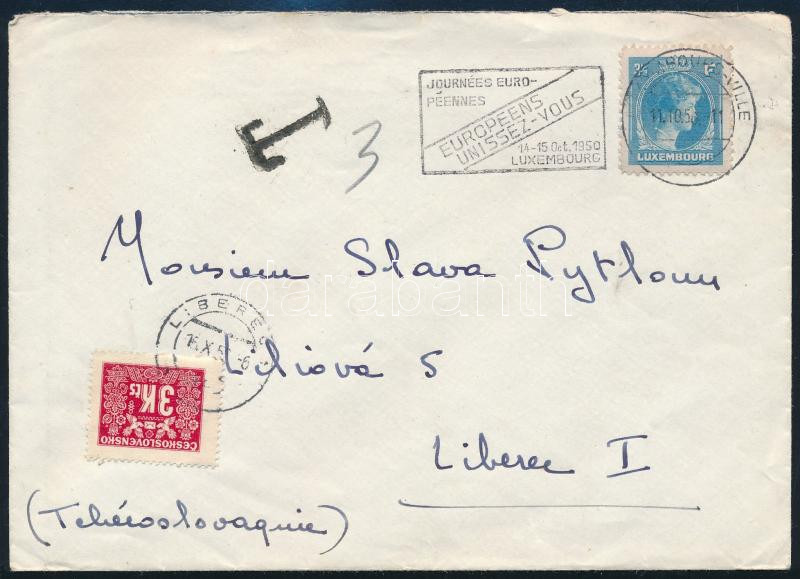 JOURNÉES EURO-
PÉENNES
EUROPÉENS
UNISSEZ-VOUS
14-15 Oct. 1950
LUXEMBOURG
3½ Fr.
LUXEMBOURG
VILLE
11.10.50 11
T
3
Monsieur Slava Pytloun
LIBEREC
Liliová 5
3 Kčs
ČESKOSLOVENSKO
Liberec I
(Tchécoslovaquie)
darabanth